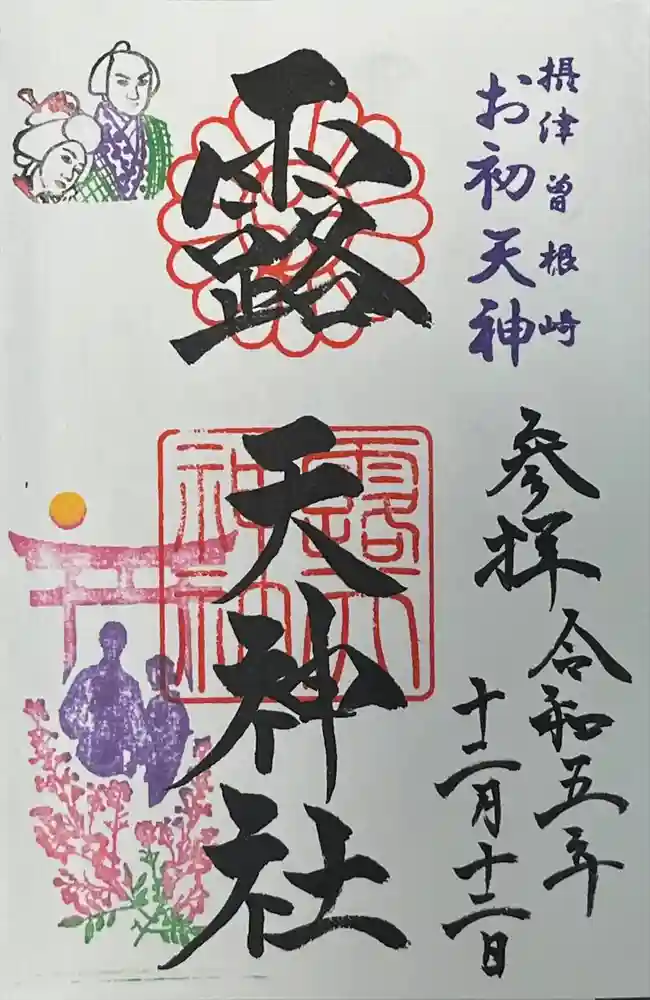 摂津曽根崎
お初天神
参拝
令和五年
十二月十二日
露
天神社
露天
神社